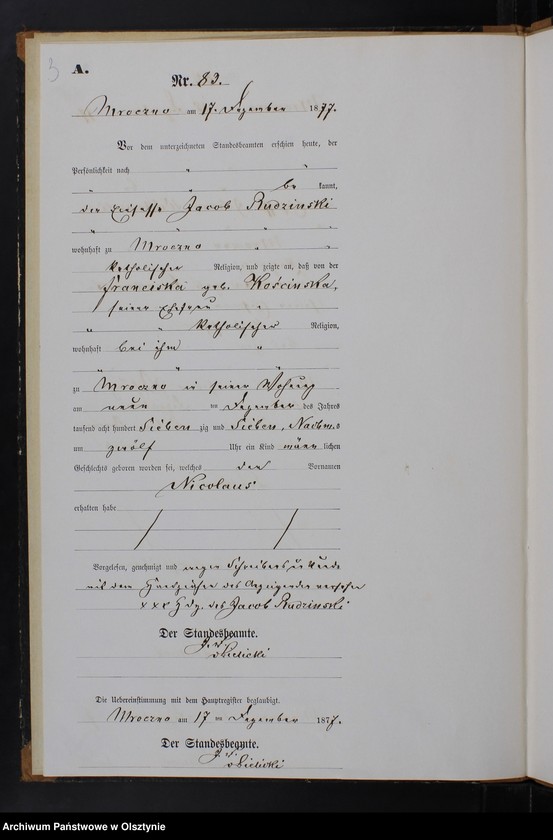 3 A.
Nr. 83.
Mroczno am 17. Dezember 1877.
Vor dem unterzeichneten Standesbeamten erschien heute, der
Persönlichkeit nach "
" " be kannt,
der Jacob Rudzinski
" " "
wohnhaft zu Mroczno " "
katholischer Religion, und zeigte an, daß von der
Franciska geb. Kościnska,
seiner Ehefrau "
" " katholischer Religion,
wohnhaft bei ihm "
" "
zu Mroczno in seiner Wohnung
am neun ten Dezember des Jahres
tausend acht hundert Sieben zig und Sieben, Nachm.s
um zwölf Uhr ein Kind männ lichen
Geschlechts geboren worden sei, welches den Vornamen
Nicolaus
erhalten habe
Vorgelesen, genehmigt und wegen Schreibensunkunde
mit dem Handzeichen des Anzeigenden versehen
x x x Hdz. des Jacob Rudzinski
Der Standesbeamte.
Die Uebereinstimmung mit dem Hauptregister beglaubigt.
Mroczno am 17 ten Dezember 1877.
Der Standesbeamte.
Archiwum Państwowe w Olsztynie